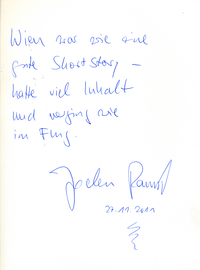 Wien war wie eine
gute Short Story –
hatte viel Inhalt
und verging wie
im Flug.
Jochen
27.11.2011